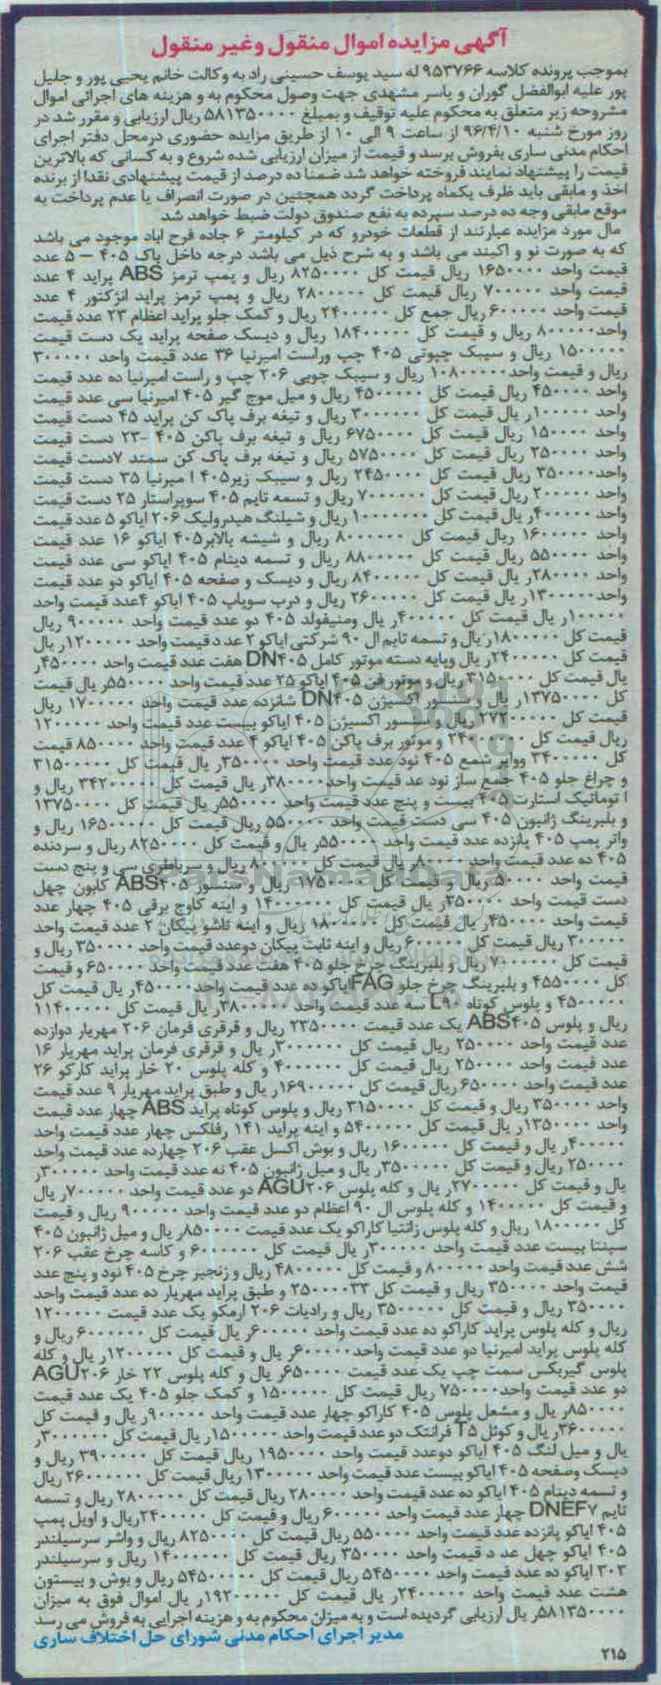 آگهی مزایده اموال منقول وغیر منقول
بموجب پرونده کلاسه ۹۵۳۷۶۶ له سید یوسف حسینی راد به وکالت خانم یحیی پور و جلیل
پور علیه ابوالفضل گوران و یاسر مشهدی جهت وصول محکوم به و هزینه های اجرائی اموال
مشروحه زیر متعلق به محکوم علیه توقیف و بمبلغ ۵۸۱۳۵۰۰۰۰ ریال ارزیابی و مقرر شد در
روز مورخ شنبه ۹۶/۴/۱۰ از ساعت ۹ الی ۱۰ از طریق مزایده حضوری درمحل دفتر اجرای
احکام مدنی ساری بفروش برسد و قیمت از میزان ارزیابی شده شروع و به کسانی که بالاترین
قیمت را پیشنهاد نمایند فروخته خواهد شد ضمنا ده درصد از قیمت پیشنهادی نقدا از برنده
اخذ و مابقی باید ظرف یکماه پرداخت گردد همچنین در صورت انصراف یا عدم پرداخت به
موقع مابقی وجه ده درصد سپرده به نفع صندوق دولت ضبط خواهد شد
مال مورد مزایده عبارتند از قطعات خودرو که در کیلومتر ۶ جاده فرح اباد موجود می باشد
که به صورت نو و اکبند می باشد و به شرح ذیل می باشد درجه داخل باک ۴۰۵ – ۵ عدد
قیمت واحد ۱۶۵۰۰۰۰ ریال قیمت کل ۸۲۵۰۰۰۰ ریال و پمپ ترمز ABS پراید ۴ عدد
قیمت واحد ۷۰۰۰۰۰ ریال قیمت کل ۲۸۰۰۰۰۰ ریال و پمپ ترمز پراید انژکتور ۴ عدد
قیمت واحد ۶۰۰۰۰۰ ریال جمع کل ۲۴۰۰۰۰۰ ریال و کمک جلو پراید اعظام ۲۳ عدد قیمت
واحد ۸۰۰۰۰۰ ریال و قیمت کل ۱۸۴۰۰۰۰۰ ریال و دیسک صفحه پراید یک دست قیمت
۱۵۰۰۰۰۰ ریال و سیبک چپوتی ۴۰۵ چپ وراست امیرنیا ۳۶ عدد قیمت واحد ۳۰۰۰۰۰
ریال و قیمت واحد ۱۰۸۰۰۰۰۰ ریال و سیبک چوبی ۲۰۶ چپ و راست امیرنیا ده عدد قیمت
واحد ۴۵۰۰۰۰ ریال قیمت کل ۴۵۰۰۰۰۰ ریال و میل موج گیر ۴۰۵ امیرنیا سی عدد قیمت
واحد ۱۰۰۰۰۰ر یال قیمت کل ۳۰۰۰۰۰۰ ریال و تیغه برف پاک کن پراید ۴۵ دست قیمت
واحد ۱۵۰۰۰۰ ریال قیمت کل ۶۷۵۰۰۰۰ ریال و تیغه برف پاکن ۴۰۵ -۲۳ دست قیمت
واحد ۲۵۰۰۰۰ ریال قیمت کل ۵۷۵۰۰۰۰ ریال و تیغه برف پاک کن سمند ۷دست قیمت
واحد ۳۵۰۰۰۰ ریال قیمت کل ۲۴۵۰۰۰۰ ریال و سیبک زیر۴۰۵ ا میرنیا ۳۵ دست قیمت
واحد ۲۰۰۰۰۰ ریال قیمت کل ۷۰۰۰۰۰۰ ریال و تسمه تایم ۴۰۵ سوپراستار ۲۵ دست قیمت
واحد ۴۰۰۰۰۰ر یال قیمت کل ۱۰۰۰۰۰۰۰ ریال و شیلنگ هیدرولیک ۲۰۶ ایاکو ۵ عدد قیمت
واحد ۱۶۰۰۰۰۰ ریال قیمت کل ۸۰۰۰۰۰۰ ریال و شیشه بالابر۴۰۵ ایاکو ۱۶ عدد قیمت
واحد ۵۵۰۰۰۰ ریال قیمت کل ۸۸۰۰۰۰۰ ریال و تسمه دینام ۴۰۵ ایاکو سی عدد قیمت
واحد ۲۸۰۰۰۰ر یال قیمت کل ۸۴۰۰۰۰۰ ریال و دیسک و صفحه ۴۰۵ ایاکو دو عدد قیمت
واحد ۱۳۰۰۰۰۰ر یال قیمت کل ۲۶۰۰۰۰۰ ریال و درب سوپاپ ۴۰۵ ایاکو ۴عدد قیمت واحد
۱۰۰۰۰۰۰ر یال قیمت کل ۴۰۰۰۰۰۰ر یال ومنیفولد ۴۰۵ دو عدد قیمت واحد ۹۰۰۰۰۰ ریال
قیمت کل ۱۸۰۰۰۰۰ر یال و تسمه تایم ال ۹۰ شرکتی ایاکو ۲ عد د قیمت واحد ۱۲۰۰۰۰۰ر یال
قیمت کل ۲۴۰۰۰۰۰ر یال وپایه دسته موتور کامل DN۴۰۵ هفت عدد قیمت واحد ۴۵۰۰۰۰ر
یال قیمت کل ۳۱۵۰۰۰۰ ریال و موتور فن ۴۰۵ ایاکو ۲۵ عدد قیمت واحد ۵۵۰۰۰۰ر یال قیمت
کل ۱۳۷۵۰۰۰۰ر یال و سنسور اکسیژن DN۴۰۵ شانزده عدد قیمت واحد ۱۷۰۰۰۰۰ ریال
قیمت کل ۲۷۲۰۰۰۰۰ ریال و سنسور اکسیژن ۴۰۵ ایاکو بیست عدد قیمت واحد ۱۲۰۰۰۰۰
ریال قیمت کل ۲۴۰۰۰۰۰۰ و موتور برف پاکن ۴۰۵ ایاکو ۴ عدد قیمت واحد ۸۵۰۰۰۰ قیمت
کل ۳۴۰۰۰۰۰ ووایر شمع ۴۰۵ نود عدد قیمت واحد ۳۵۰۰۰۰ر یال قیمت کل ۳۱۵۰۰۰۰۰
و چراغ جلو ۴۰۵ جمع ساز نود عد قیمت واحد ۳۸۰۰۰۰ر یال قیمت کل ۳۴۲۰۰۰۰۰ ریال و
ا توماتیک استارت ۴۰۵ بیست و پنج عدد قیمت واحد ۵۵۰۰۰۰ر یال قیمت کل ۱۳۷۵۰۰۰۰
و بلبرینگ ژانبون ۴۰۵ سی دست قیمت واحد ۵۵۰۰۰۰ ریال قیمت کل ۱۶۵۰۰۰۰۰ ریال و
واتر پمپ ۴۰۵ پانزده عدد قیمت واحد ۵۵۰۰۰۰ر یال و قیمت کل ۸۲۵۰۰۰۰ ریال و سردنده
۴۰۵ ده عدد قیمت واحد ۸۰۰۰۰ر یال قیمت کل ۸۰۰۰۰۰ ریال و سرباطری سی و پنج دست
قیمت واحد ۵۰۰۰۰ر یال و قیمت کل ۱۷۵۰۰۰۰ ریال و سنسور ABS۴۰۵ کانون چهل
دست قیمت واحد ۳۵۰۰۰۰ر یال قیمت کل ۱۴۰۰۰۰۰۰ و اینه کاوج برقی ۴۰۵ چهار عدد
قیمت واحد ۴۵۰۰۰۰ر یال قیمت کل ۱۸۰۰۰۰۰ ریال و اینه تاشو پیکان ۲ عدد قیمت واحد
۳۰۰۰۰۰ ریال قیمت کل ۶۰۰۰۰۰ر یال و اینه ثابت پیکان دوعدد قیمت واحد ۳۵۰۰۰۰ ریال و
قیمت کل ۷۰۰۰۰۰ ریال و بلبرینگ چرخ جلو ۴۰۵ هفت عدد قیمت واحد ۶۵۰۰۰۰ و قیمت
کل ۴۵۵۰۰۰۰ و بلبرینگ چرخ جلو FAGایاکو ده عدد قیمت واحد ۴۵۰۰۰۰ر یال قیمت کل
۴۵۰۰۰۰۰ و پلوس کوتاه L۹۰ سه عدد قیمت واحد ۳۸۰۰۰۰۰ر یال قیمت کل ۱۱۴۰۰۰۰۰
ریال و پلوس ABS۴۰۵ یک عدد قیمت ۲۳۵۰۰۰۰ ریال و قرقری فرمان ۲۰۶ مهریار دوازده
عدد قیمت واحد ۲۵۰۰۰۰ ریال قیمت کل ۳۰۰۰۰۰۰ر یال و قرقری فرمان پراید مهریار ۱۶
عدد قیمت واحد ۲۵۰۰۰۰ ریال قیمت کل ۴۰۰۰۰۰۰ و کله پلوس ۲۰ خار پراید کارکو ۲۶
عدد قیمت واحد ۶۵۰۰۰۰ ریال قیمت کل ۱۶۹۰۰۰۰۰ر یال و طبق پراید مهریار ۹ عدد قیمت
واحد ۳۵۰۰۰۰ ریال و قیمت کل ۳۱۵۰۰۰۰ ریال و پلوس کوتاه پراید ABS چهار عدد قیمت
واحد ۱۳۵۰۰۰۰ر یال قیمت کل ۵۴۰۰۰۰۰ و اینه پراید ۱۴۱ رفلکس چهار عدد قیمت واحد
۴۰۰۰۰۰ر یال و قیمت کل ۱۶۰۰۰۰۰ ریال و بوش اکسل عقب ۲۰۶ چهارده عدد قیمت واحد
۲۵۰۰۰۰ ریال و قیمت کل ۳۵۰۰۰۰۰ر یال و میل ژانبون ۴۰۵ نه عدد قیمت واحد ۳۰۰۰۰۰ر
یال و قیمت کل ۲۷۰۰۰۰۰ر یال و کله پلوس AGU۲۰۶ دو عدد قیمت واحد ۷۰۰۰۰۰ر یال
و قیمت کل ۱۴۰۰۰۰۰ و کله پلوس ال ۹۰ اعظام دو عدد قیمت واحد ۹۰۰۰۰۰ ریال و قیمت
کل ۱۸۰۰۰۰۰ ریال و کله پلوس زانتیا کاراکو یک عدد قیمت ۸۵۰۰۰۰ر یال و میل ژانبون ۴۰۵
سینتا بیست عدد قیمت واحد ۳۰۰۰۰۰ر یال قیمت کل ۶۰۰۰۰۰۰ و کاسه چرخ عقب ۲۰۶
شش عدد قیمت واحد ۸۰۰۰۰۰ و قیمت کل ۴۸۰۰۰۰۰ ریال و زنجیر چرخ ۴۰۵ نود و پنج عدد
قیمت واحد ۳۵۰۰۰۰ ریال و قیمت کل ۳۳۲۵۰۰۰۰ و طبق پراید مهریار ده عدد قیمت واحد
۳۵۰۰۰۰ ریال و قیمت کل ۳۵۰۰۰۰۰ ریال و رادیات ۲۰۶ ارمکو یک عدد قیمت ۱۲۰۰۰۰۰
ریال و کله پلوس پراید کاراکو ده عدد قیمت واحد ۶۰۰۰۰۰ر یال قیمت کل ۶۰۰۰۰۰۰ ریال و
کله پلوس پراید امیرنیا دو عدد قیمت واحد ۶۰۰۰۰۰ر یال و قیمت کل ۱۲۰۰۰۰۰ر یال و کله
پلوس گیربکس سمت چپ یک عدد قیمت ۶۵۰۰۰۰ر یال و کله پلوس ۲۲ خار AGU۲۰۶
دو عدد قیمت واحد ۷۵۰۰۰۰ ریال قیمت کل ۱۵۰۰۰۰۰ و کمک جلو ۴۰۵ یک عدد قیمت
۸۵۰۰۰۰ر یال و مشعل پلوس ۴۰۵ کاراکو چهار عدد قیمت واحد ۹۰۰۰۰۰ر یال و قیمت کل
۳۶۰۰۰۰۰ر یال و کوئل T۵ فرانتک دو عدد قیمت واحد ۱۵۰۰۰۰۰ر یال قیمت کل ۳۰۰۰۰۰۰ر
یال و میل لنگ ۴۰۵ ایاکو دوعدد قیمت واحد ۱۹۵۰۰۰۰ ریال قیمت کل ۳۹۰۰۰۰۰ ریال و
دیسک وصفحه ۴۰۵ ایاکو بیست عدد قیمت واحد ۱۳۰۰۰۰۰ ریال قیمت کل ۲۶۰۰۰۰۰۰ ریال
و تسمه دینام ۴۰۵ ایاکو ده عدد قیمت واحد ۲۸۰۰۰۰ ریال قیمت کل ۲۸۰۰۰۰۰ ریال و تسمه
تایم DNEF۷ چهار عدد قیمت واحد ۶۰۰۰۰۰ ریال و قیمت کل ۲۴۰۰۰۰۰ریال و اویل پمپ
۴۰۵ ایاکو پانزده عدد قیمت واحد ۵۵۰۰۰۰ ریال قیمت کل ۸۲۵۰۰۰۰ ریال و واشر سرسیلندر
۴۰۵ ایاکو چهل عد د قیمت واحد ۳۵۰۰۰۰ ریال قیمت کل ۱۴۰۰۰۰۰۰ ریال و سرسیلندر
۲۰۳ ایاکو ده عدد قیمت واحد ۵۴۵۰۰۰۰ ریال قیمت کل ۵۴۵۰۰۰۰۰ ریال و بوش و بیستون
هشت عدد قیمت واحد ۲۴۰۰۰۰۰ر یال قیمت کل ۱۹۲۰۰۰۰۰ر یال اموال فوق به میزان
۵۸۱۳۵۰۰۰۰ر یال ارزیابی گردیده است و به میزان محکوم به و هزینه اجرایی به فروش می رسد
مدیر اجرای احکام مدنی شورای حل اختلاف ساری
۲۱۵
ParsNamadData